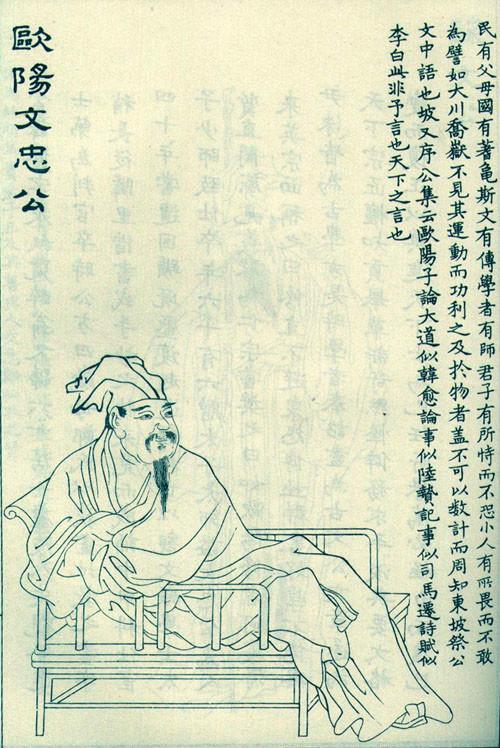 民有父母國有蓍龜斯文有傳學者有師君子有所恃而不恐小人有所畏而不敢
為譬如大川喬嶽不見其運動而功利之及於物者蓋不可以數計而周知東坡祭公
文中語也坡又序公集云歐陽子論大道似韓愈論事似陸贄記事似司馬遷詩賦似
李白此非予言也天下之言也
歐陽文忠公